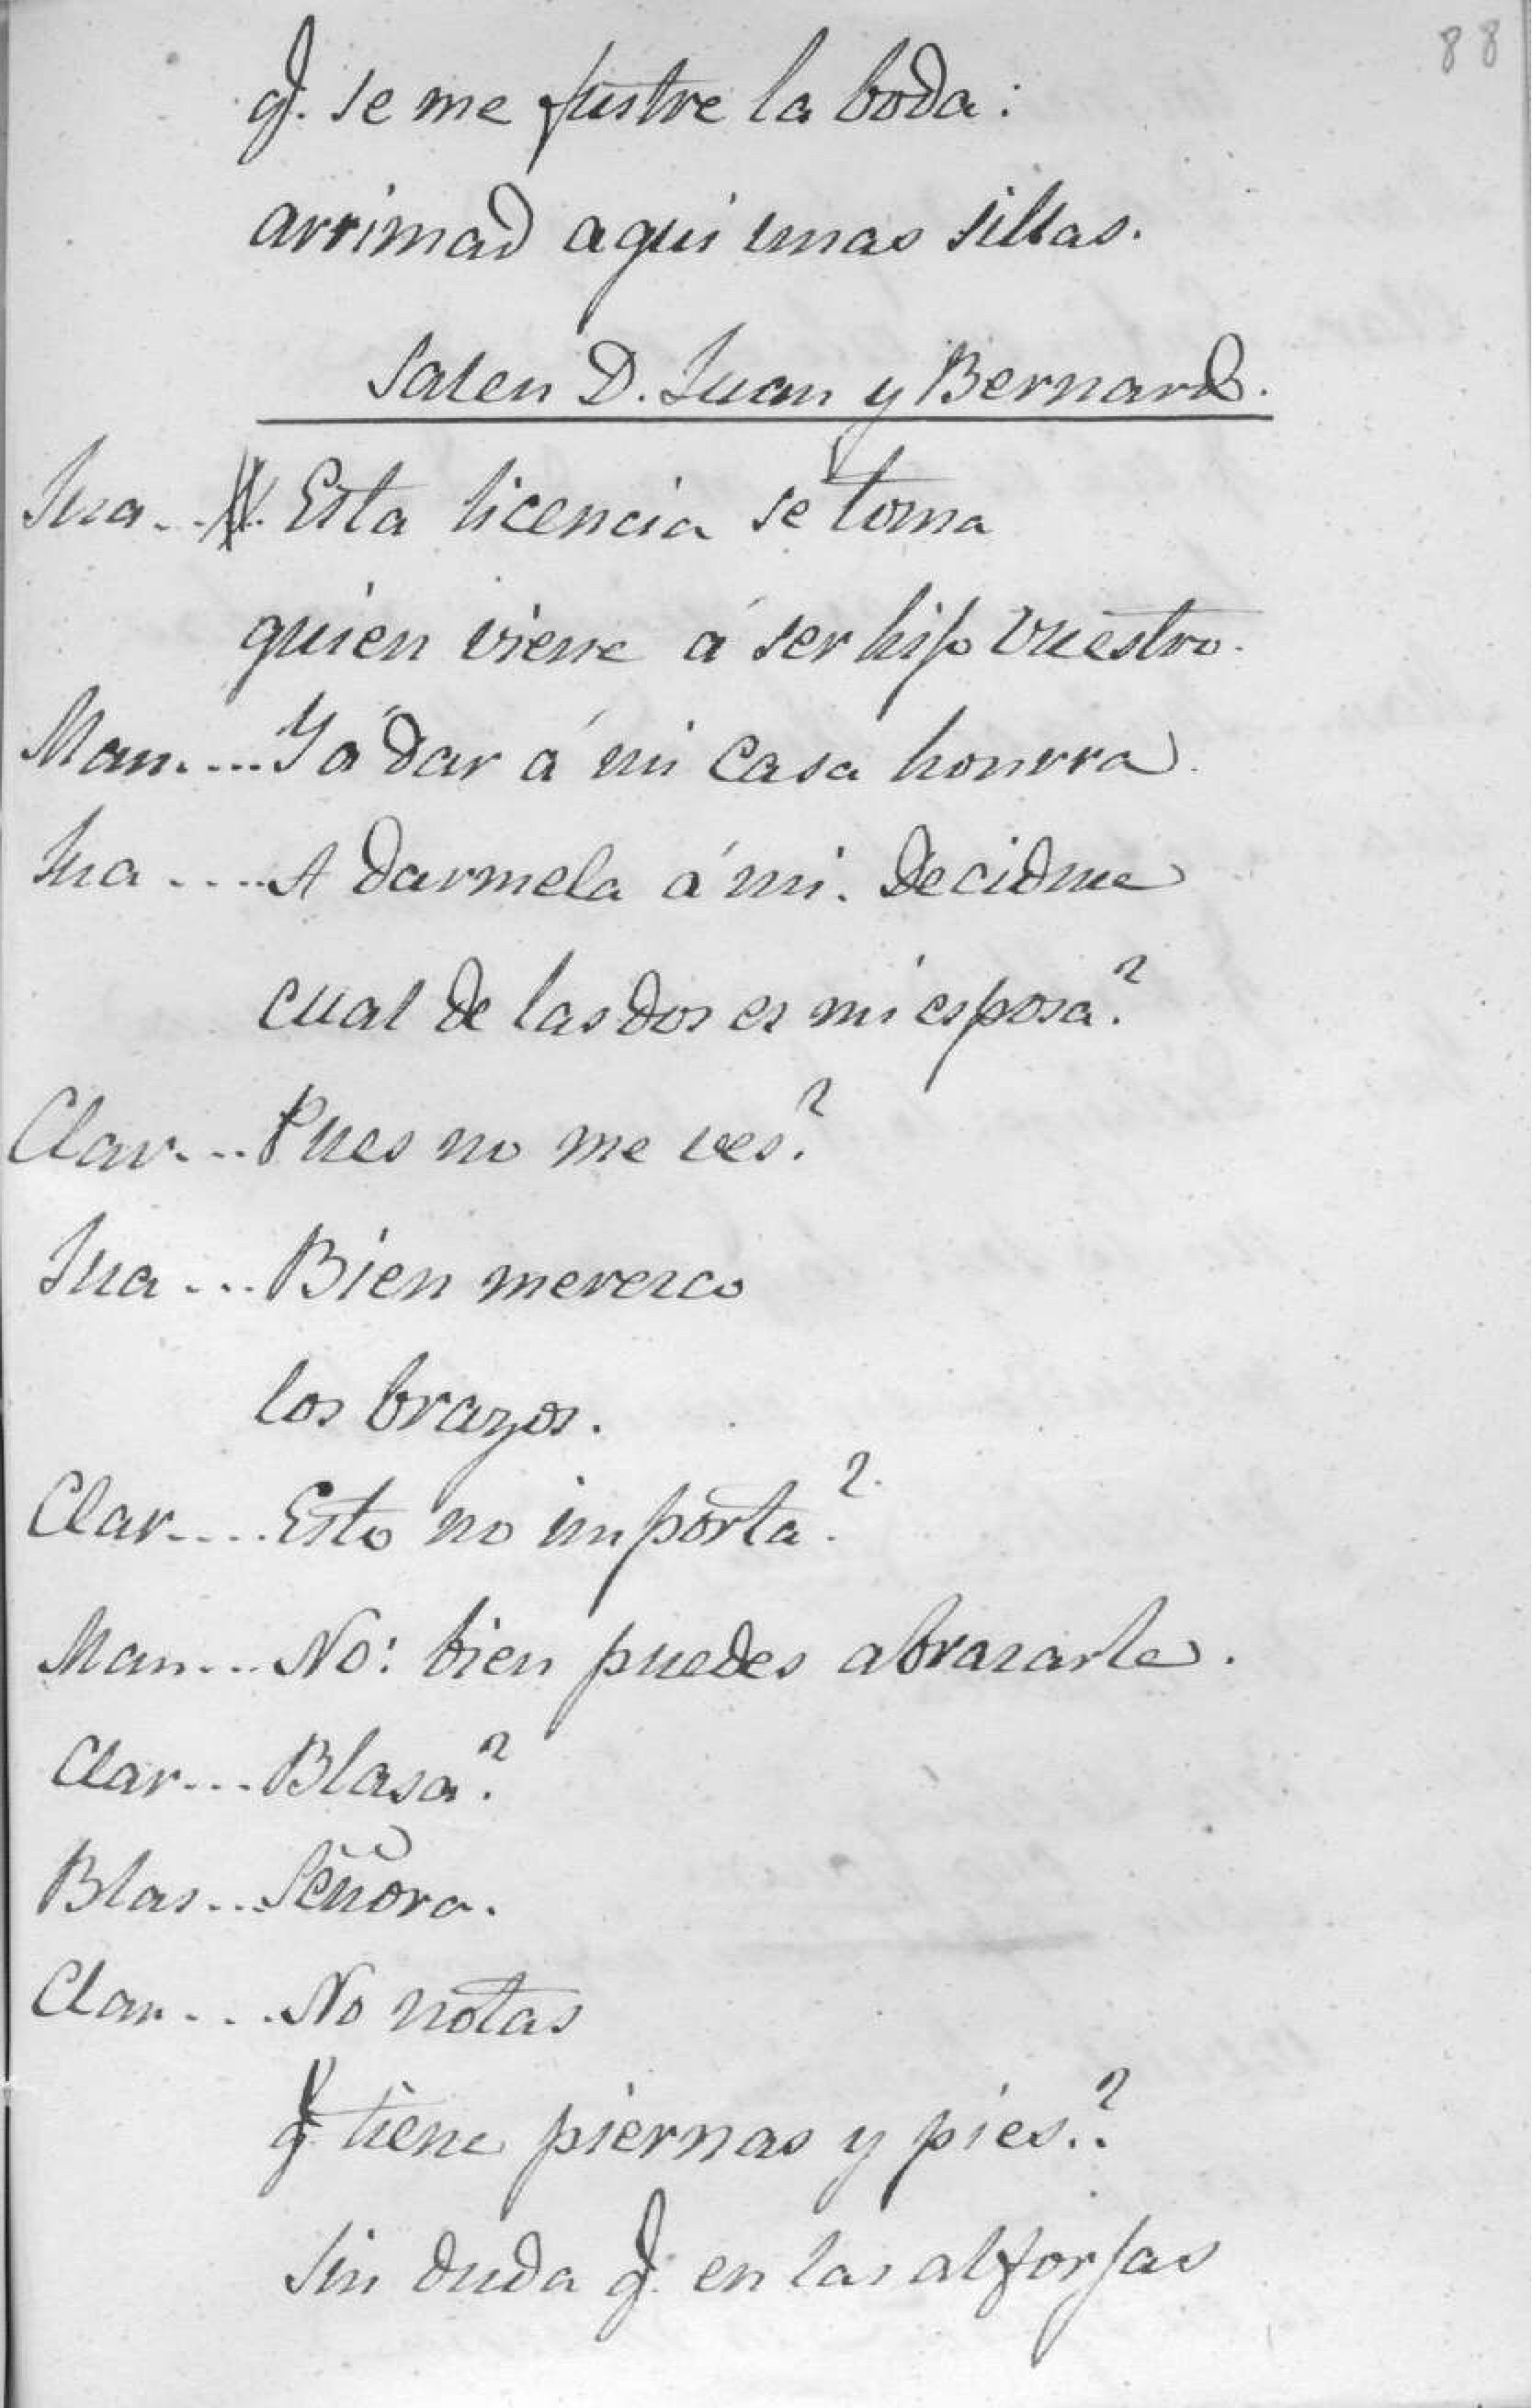 88
q.e se me fustre la boda:
arrimad aqui unas sillas.
Salen D. Juan y Bernard.
Jua... Esta licencia se toma
quien viene á ser hijo vuestro.
Man.... Y á dar á mi casa honrra
Jua.... A darmela á mi. Decidme
cual de las dos es mi esposa?
Clar... Pues no me ves?
Jua... Bien merezco
los brazos.
Clar.... Esto no importa?
Man... No: bien puedes abrazarle.
Clar... Blasa?
Blas... Señora.
Clar... No notas
q.e tiene piernas y pies..?
Sin duda q.e en las alforjas